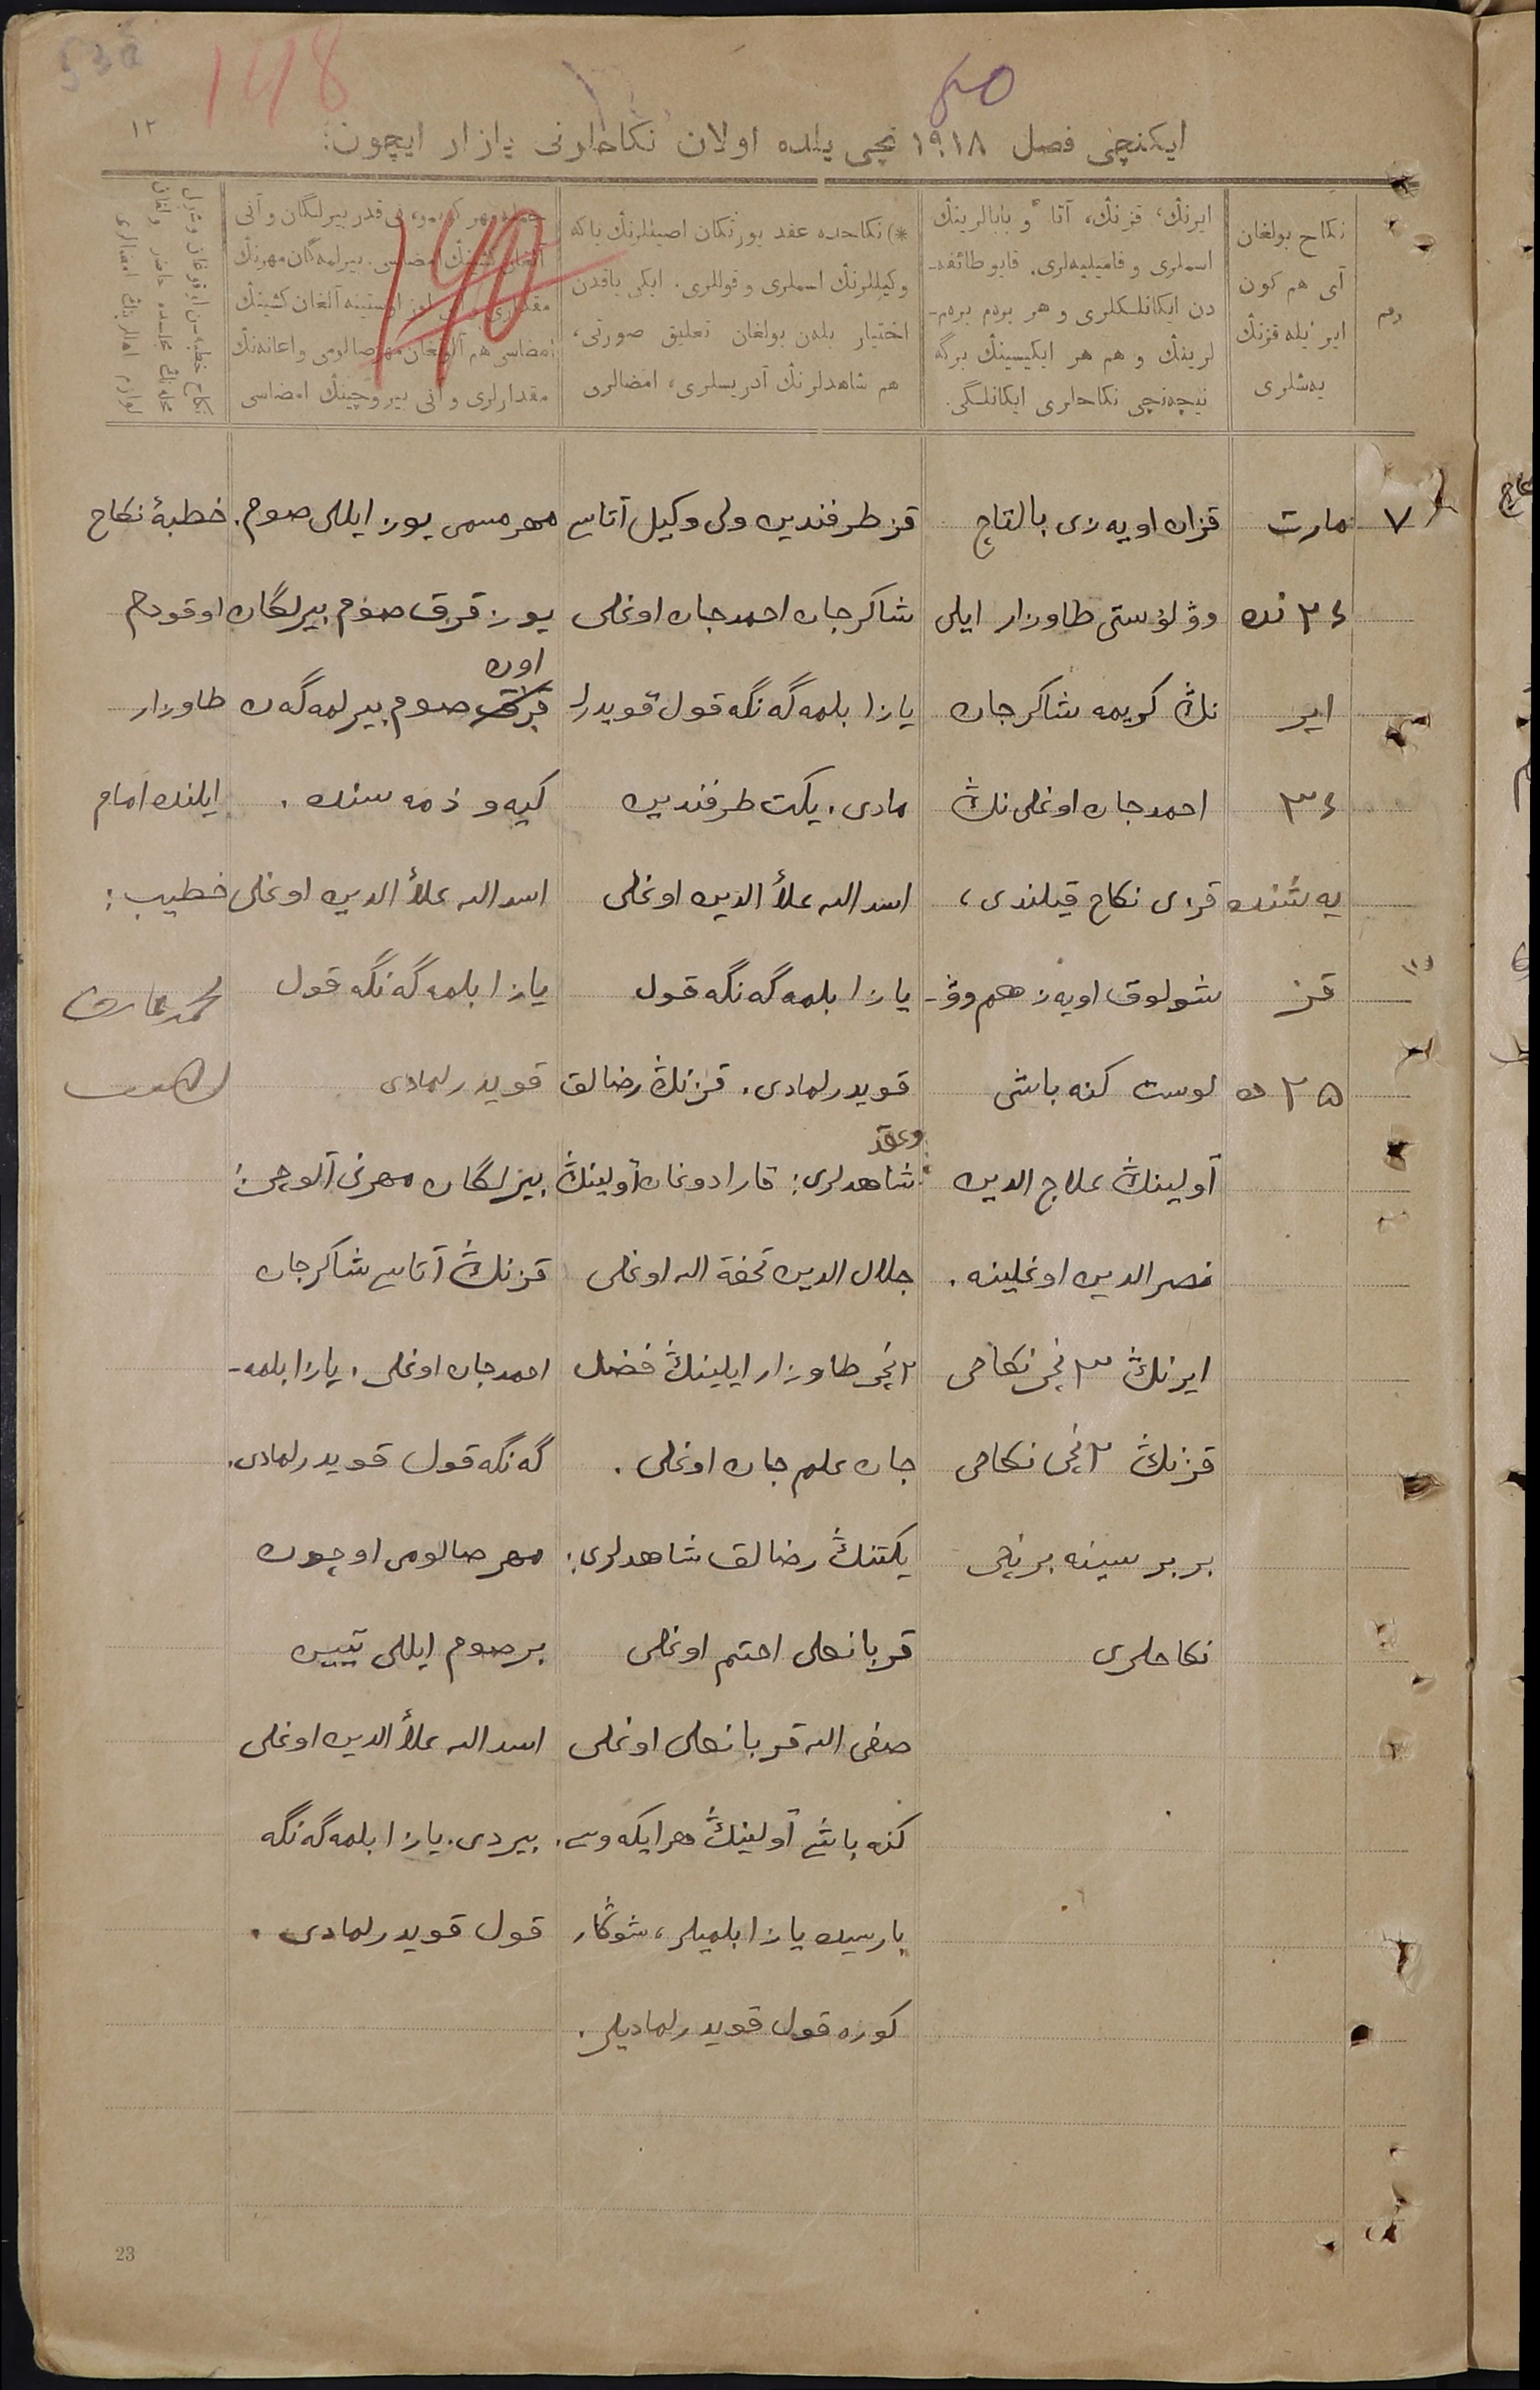 53a
148
60
۱۲
ایکنچی فصل ۱۹۱۸ نچی یلده اولان نکاحلرنی یازار ایچون:
رقم
نکاح بولغان
آی هم کون
ایر ایله قزنڭ
یه‌شلری
ایرنڭ، قزنڭ، آتا و بابالرینڭ
اسملری و فامیلیه‌لری. قایو طائفه‌-
دن ایکانلکلری و هر بره‌م بره‌م-
لرینڭ و هم هر ایکیسینڭ برگه
نیچه‌نچی نکاحلری ایکانلگی.
*) نکاحده عقد یورتکان اصیللرنڭ یاکه
وکیللرنڭ اسملری و قوللری. ایکی یاقدن
اختیار بلەن بولغان تعلیق صورتی،
هم شاهدلرنڭ آدریسلری، امضالری
قدر بیرلگان و آنی
آلغان کشینڭ امضاسی. بیرلمه‌گان مهرنڭ
اوستینه آلغان کشینڭ
امضاسی هم آلونغان مهر صالومی و اعانه‌نڭ
مقدارلری و آنی بیروچینڭ امضاسی
140
۷
مارت
۲۴ نده
ایر
۳۴
یه‌شنده
قز
۲۵ ده
قزان اویه‌زی بالتاچ
وۋلۇستی طاوزار ایلی
نڭ کریمه شاکرجان
احمدجان اوغلی نڭ
قزی نکاح قیلندی،
شولوق اویه‌ز هم وۋ-
لوست کنه باشی
آولینڭ علاج الدین
نصرالدین اوغلینه.
ایرنڭ ۳ نچی نکاحی
قزنڭ ۲ نچی نکاحی
بر برسینه برنچی
نکاحلری
قز طرفندین ولی وکیل آتاسی
شاکرجان احمدجان اوغلی
یازا بلمه‌گه‌نگه قول قویدرل
مادی. یکت طرفندین
اسدالله علأ الدین اوغلی
یازا بلمه‌گه‌نگه قول
قویدرلمادی. قزنڭ رضالق
وعقد
شاهدلری: قارادوغان آولینڭ
جلال الدین تحفة الله اوغلی
۲ نچی طاوزار ایلینڭ فضل
جان علم جان اوغلی.
یکتنڭ رضالق شاهدلری:
قربانعلی احتم اوغلی
صفی الله قربانعلی اوغلی
کنه باشی آولینڭ هر ایکه‌وسی.
بارسیده یازا بلمیلر، شوڭار
کوره قول قویدرلمادیلر.
مهر مسمی یوز ایللی صوم.
یوز قرق صوم بیرلگان
اون
قرق صوم بیرلمه‌گه‌ن
کیه‌و ذمه سنده.
اسدالله علأ الدین اوغلی
یازا بلمه‌گه‌نگه قول
قویدرلمادی
بیرلگان مهرنی آلوچی:
قزنڭ آتاسی شاکرجان
احمدجان اوغلی. یازا بلمه-
گه‌نگه قول قویدرلمادی.
مهر صالومی اوچون
بر صوم ایللی تیین
اسدالله علأ الدین اوغلی
بیردی. یازا بلمه‌گه‌نگه
قول قویدرلمادی.
خطبهٔ نکاح
اوقودم
طاوزار
ایلنده امام
خطیب:
محمدعارف
23